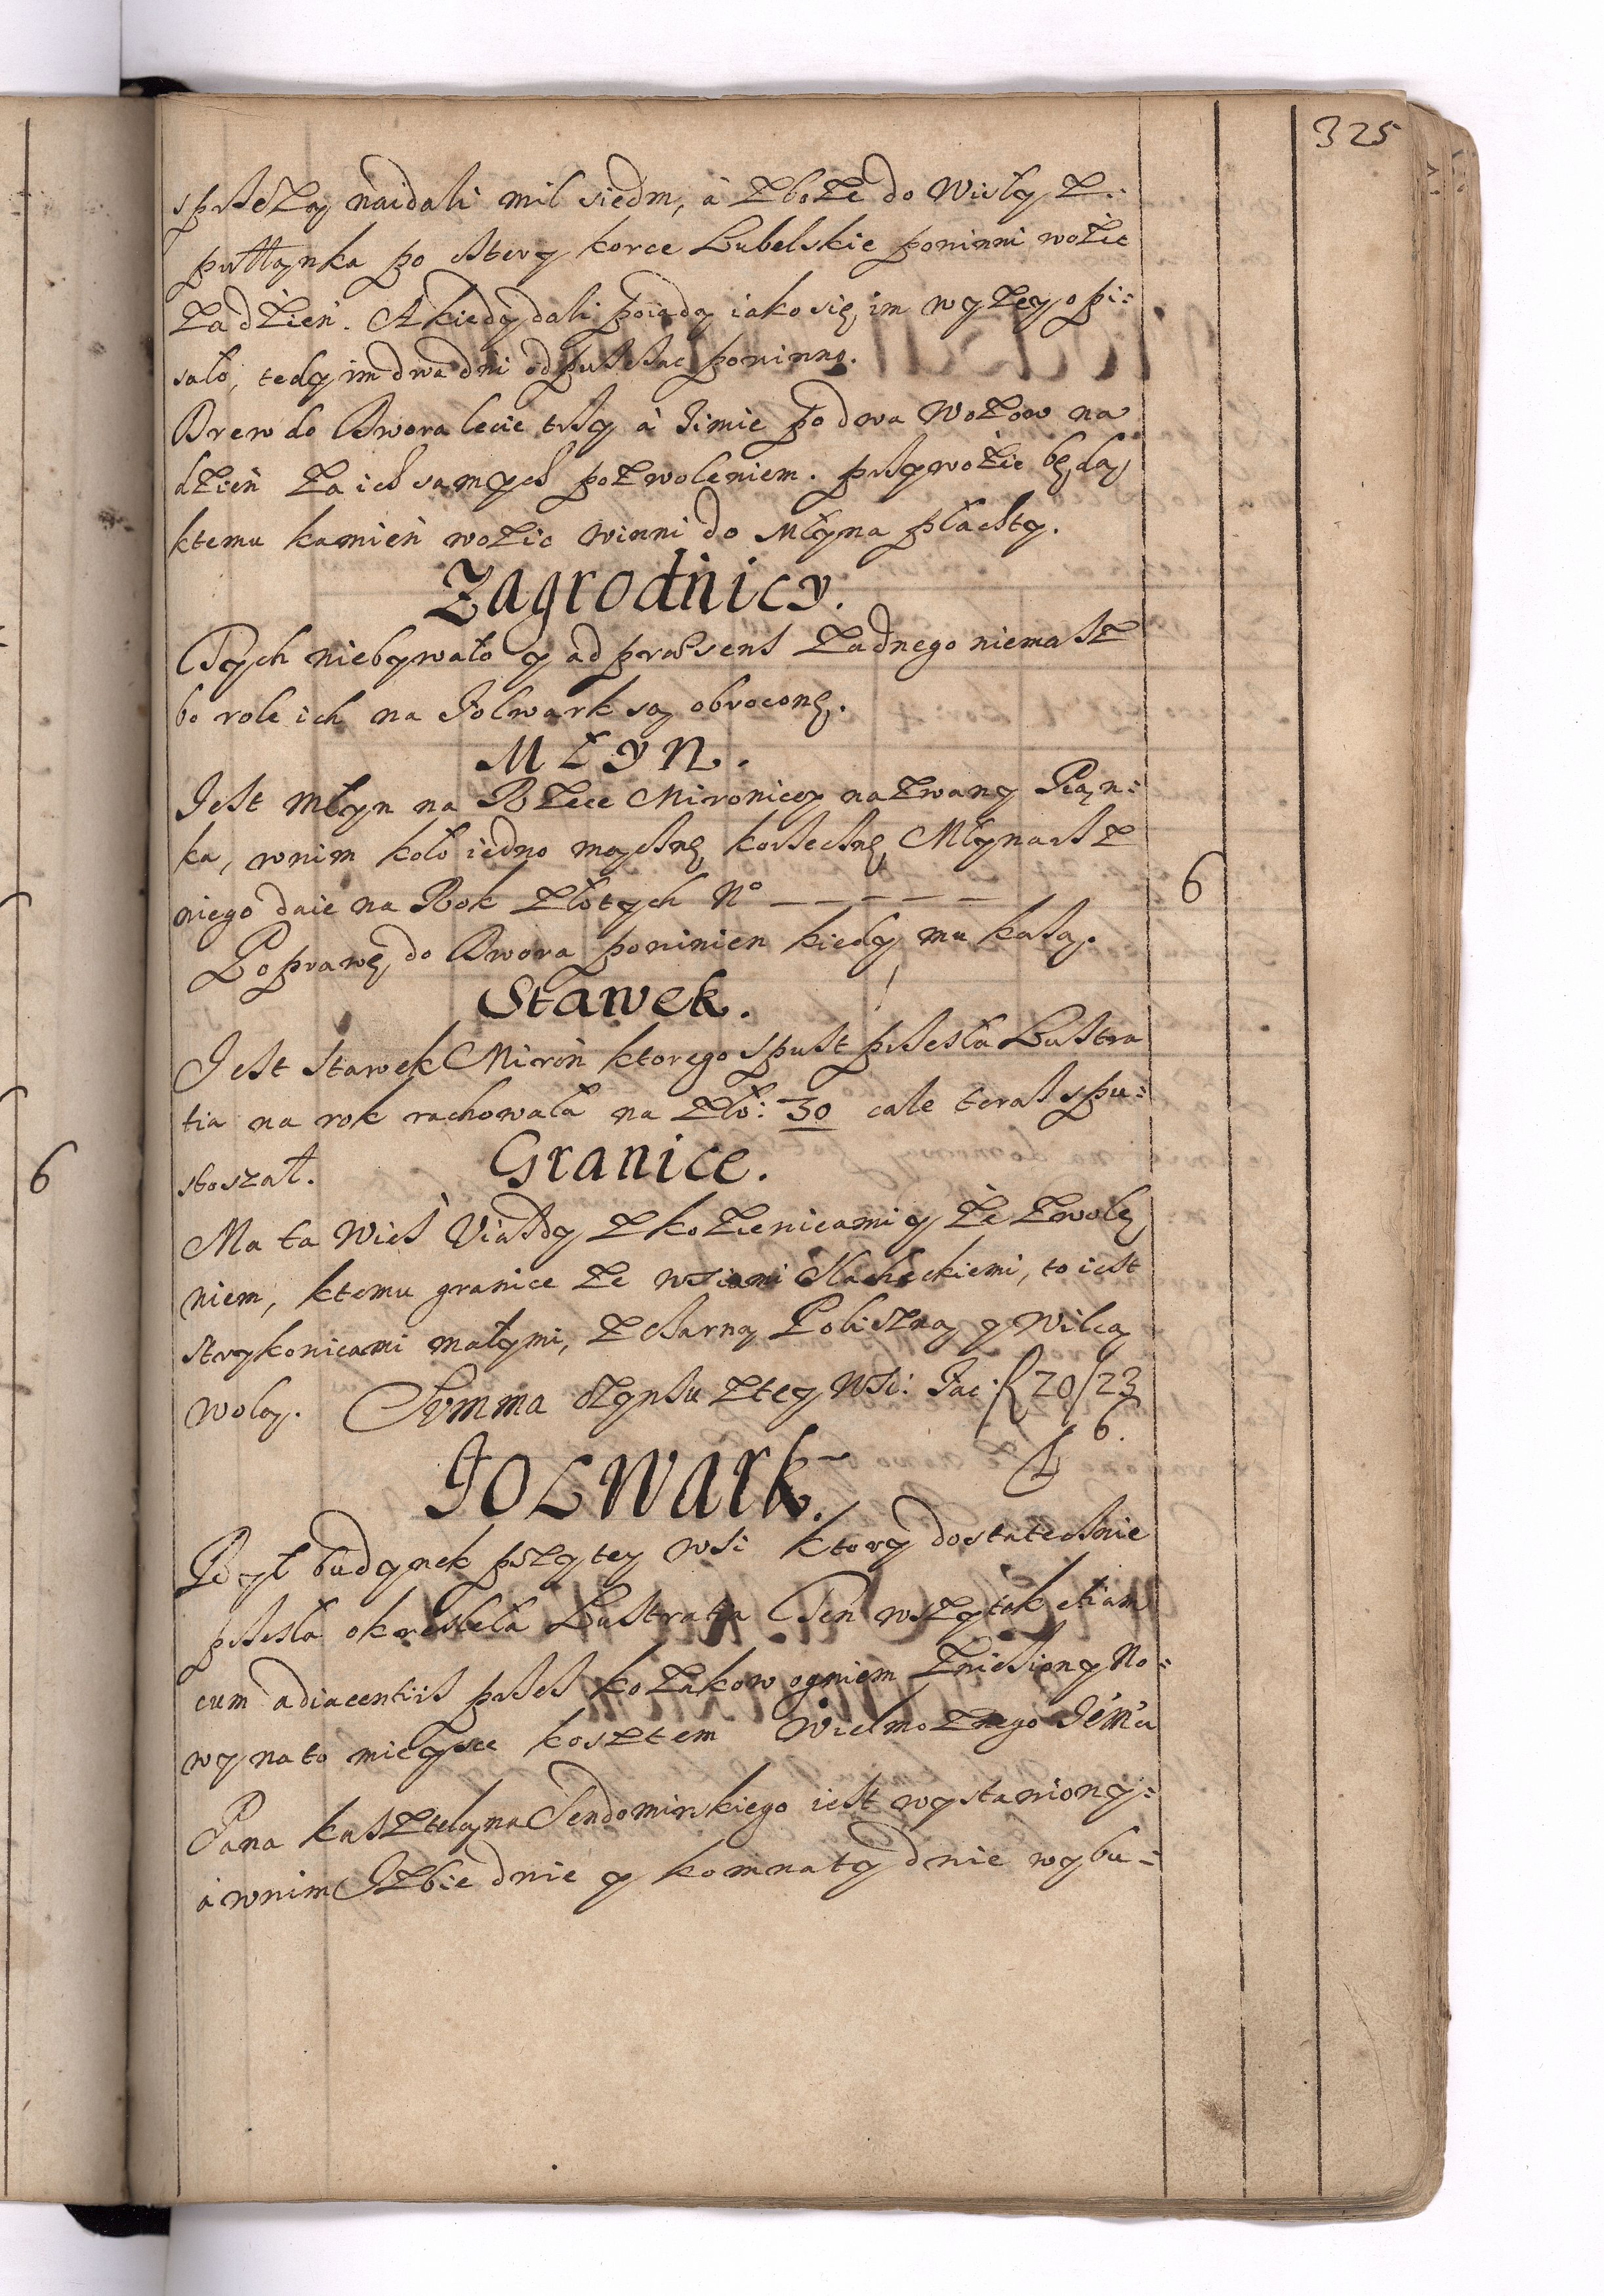 325
sprzężą naidali mil siedm, à Zboże do Wisły z
puttynka po cztery korce Lubelskie powinni wozic
za dzień. A kiedy dali poiadą iako się im wyżey opi:
sało, tedy im dwa dni odpuszczac powinno.
Drew do Dwora lecie trzy à zimie po dwa Wozow na
dzień za ich samych pozwoleniem przywozic będą,
ktemu kamień wozic winni do Młyna płachty.
Zagrodnicy.
Tych niebywało y ad præsens żadnego niemasz
bo role ich na Folwark są obrocone.
Młyn.
Jest Młyn na Rzece Mironicey nazwany Piąn:
ka, wnim koło iedno mączne korzeczne, Młynarz z
niego daie na Rok Złotych No ————— 6
Poprawę do Dwora powinien kiedy mu każą.
Stawek.
Jest stawek Miron ktorego spust przeszła Lustra
tia na rok rachowała na Zło: 30 cale teraz spu:
stoszał.
Granice.
Ma ta Wieś Uiazdy z kozienicami y że Zwole
niem, ktemu granice ze wsiami Slacheckiemi, to iest
strykonicami małymi, z czarną Poliszną y Wilcą
wolą. Summa czynszu ztey Wsi: Fac: f 20/23
6.
Folwark.
Był budynek przytey wsi ktory dostatecznie
przeszła okreslela Lustratia Ten wszytek etiam
cum adiacentiis przez kozakow ogniem zniesiony No:
wy na to mieysce kosztem Wielmożnego Jém̃ci
Pana kasztelana Sendomirskiego iest wystawiony:
à wnim Izbie dwie y komnaty dwie wybu:
6